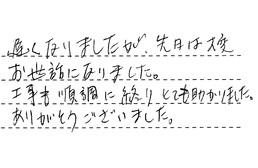 遅くなりましたが、先日は大変
お世話になりました。
工事も順調に終りとても助かりました。
ありがとうございました。